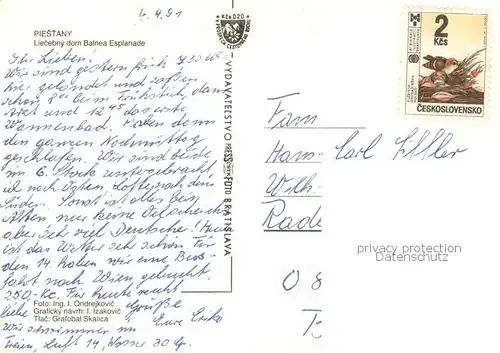 4.4.91
PIEŠŤANY
Liečebný dom Balnea Esplanade
Ihr Lieben!
Wir sind gestern früh 7.30
hier gelandet und saßen
schon 8 beim Frühstück, dann
Arzt und 12 das erste
Wannenbad. Haben dann
den ganzen Nachmittag
geschlafen. Wir sind beide
im 6. Stock untergebracht
nach Osten, nach dem
Süden. Sonst ist alles beim
Alten nur keine
aber sehr viel Deutsche! Heute
ist das Wetter sehr schön. Für
den 14. haben wir eine Bus-
fahrt nach Wien gebucht.
250,-Kc. Für heute recht
liebe Grüße
Eure Erika
Wir schwimmen im
Freien, Luft 14, Wasser 30
Foto: Ing. I. Ondrejkovič
Grafický návrh: I. Izakovič
Tlač: Grafobal Skalica
Kčs 0,20
VYDAVATEĽSTVO PRESSFOTO BRATISLAVA
2
Kčs
ČESKOSLOVENSKO
Fam
Hans-Carl
Wilh
Rade
privacy protection
Datenschutz
O 8